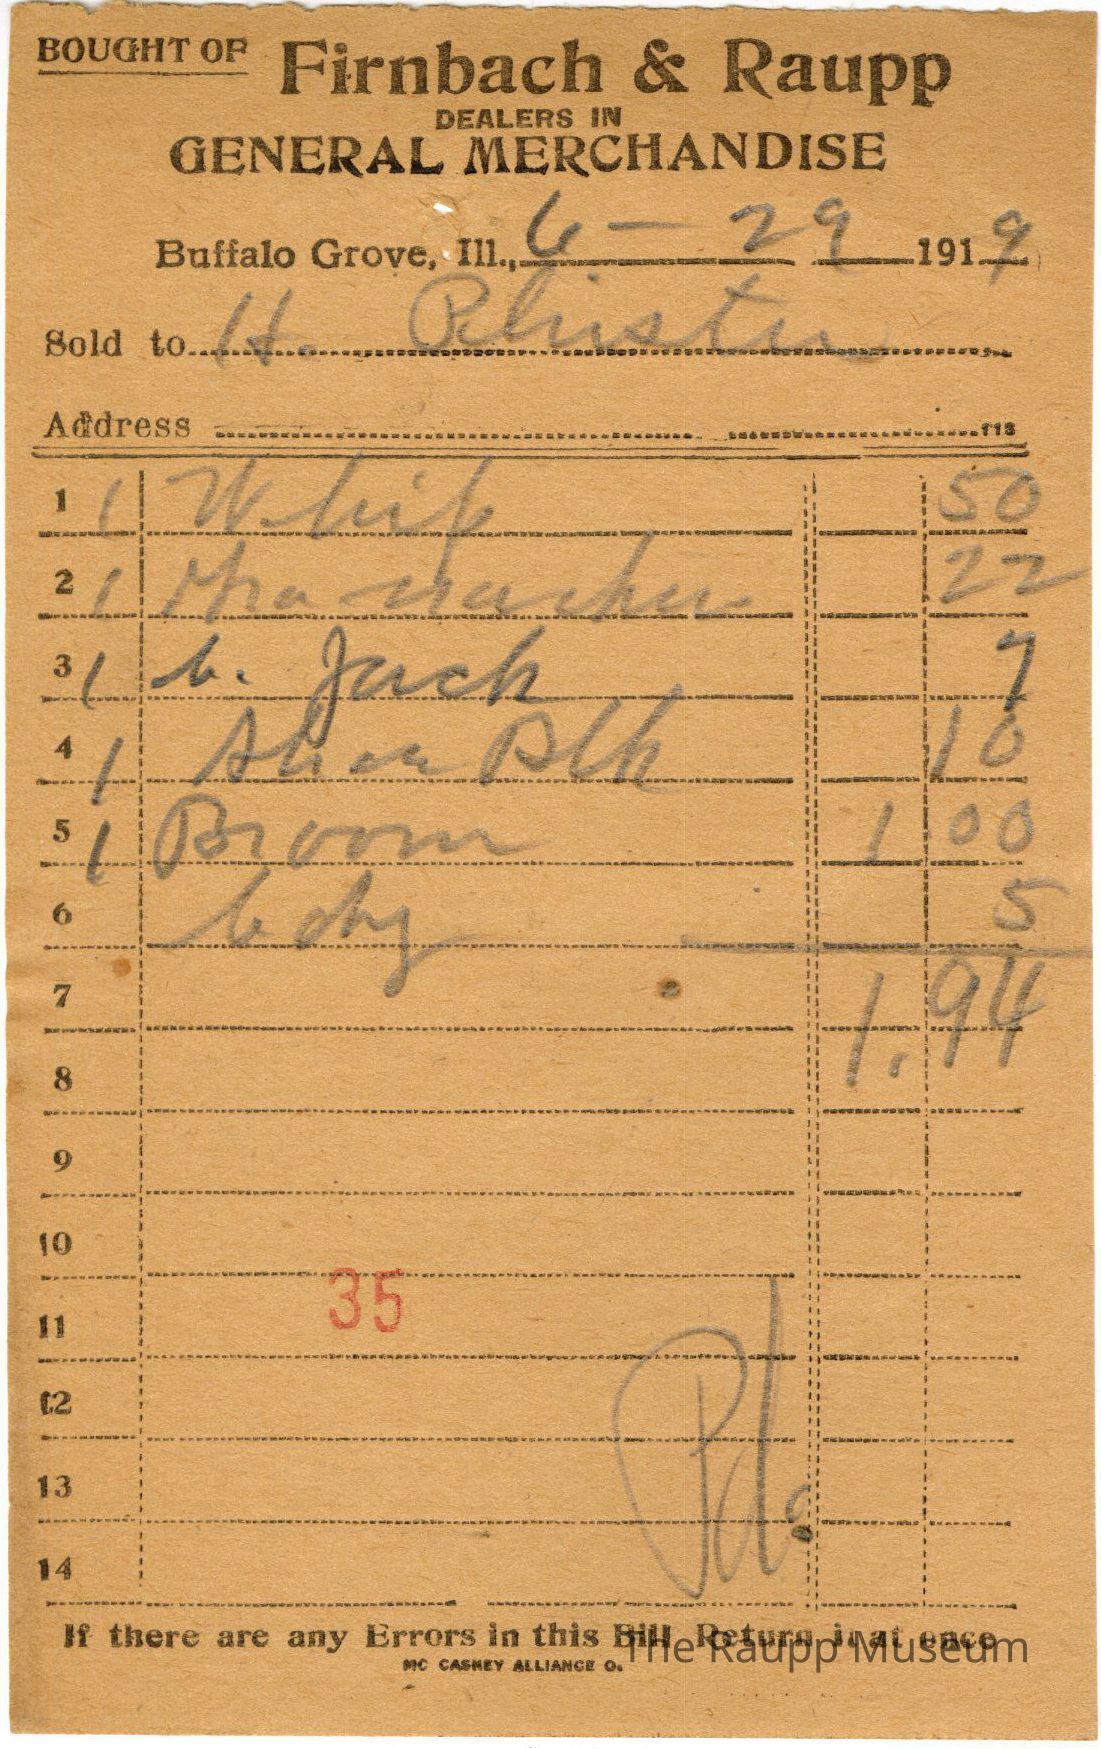 BOUGHT OF Firnbach & Raupp
DEALERS IN
GENERAL MERCHANDISE
Buffalo Grove, Ill., 6 – 29 1919
Sold to H.
Address 118
1 1 Whip 50
2 1 22
3 1 b. Jack 7
4 1 Shoe Blk 10
5 1 Broom 1 00
6 5
7 1.94
8
9
10
35
11
12
Pd.
13
14
If there are any Errors in this Bill Return it at once
The Raupp Museum
MC CASKEY ALLIANCE O.